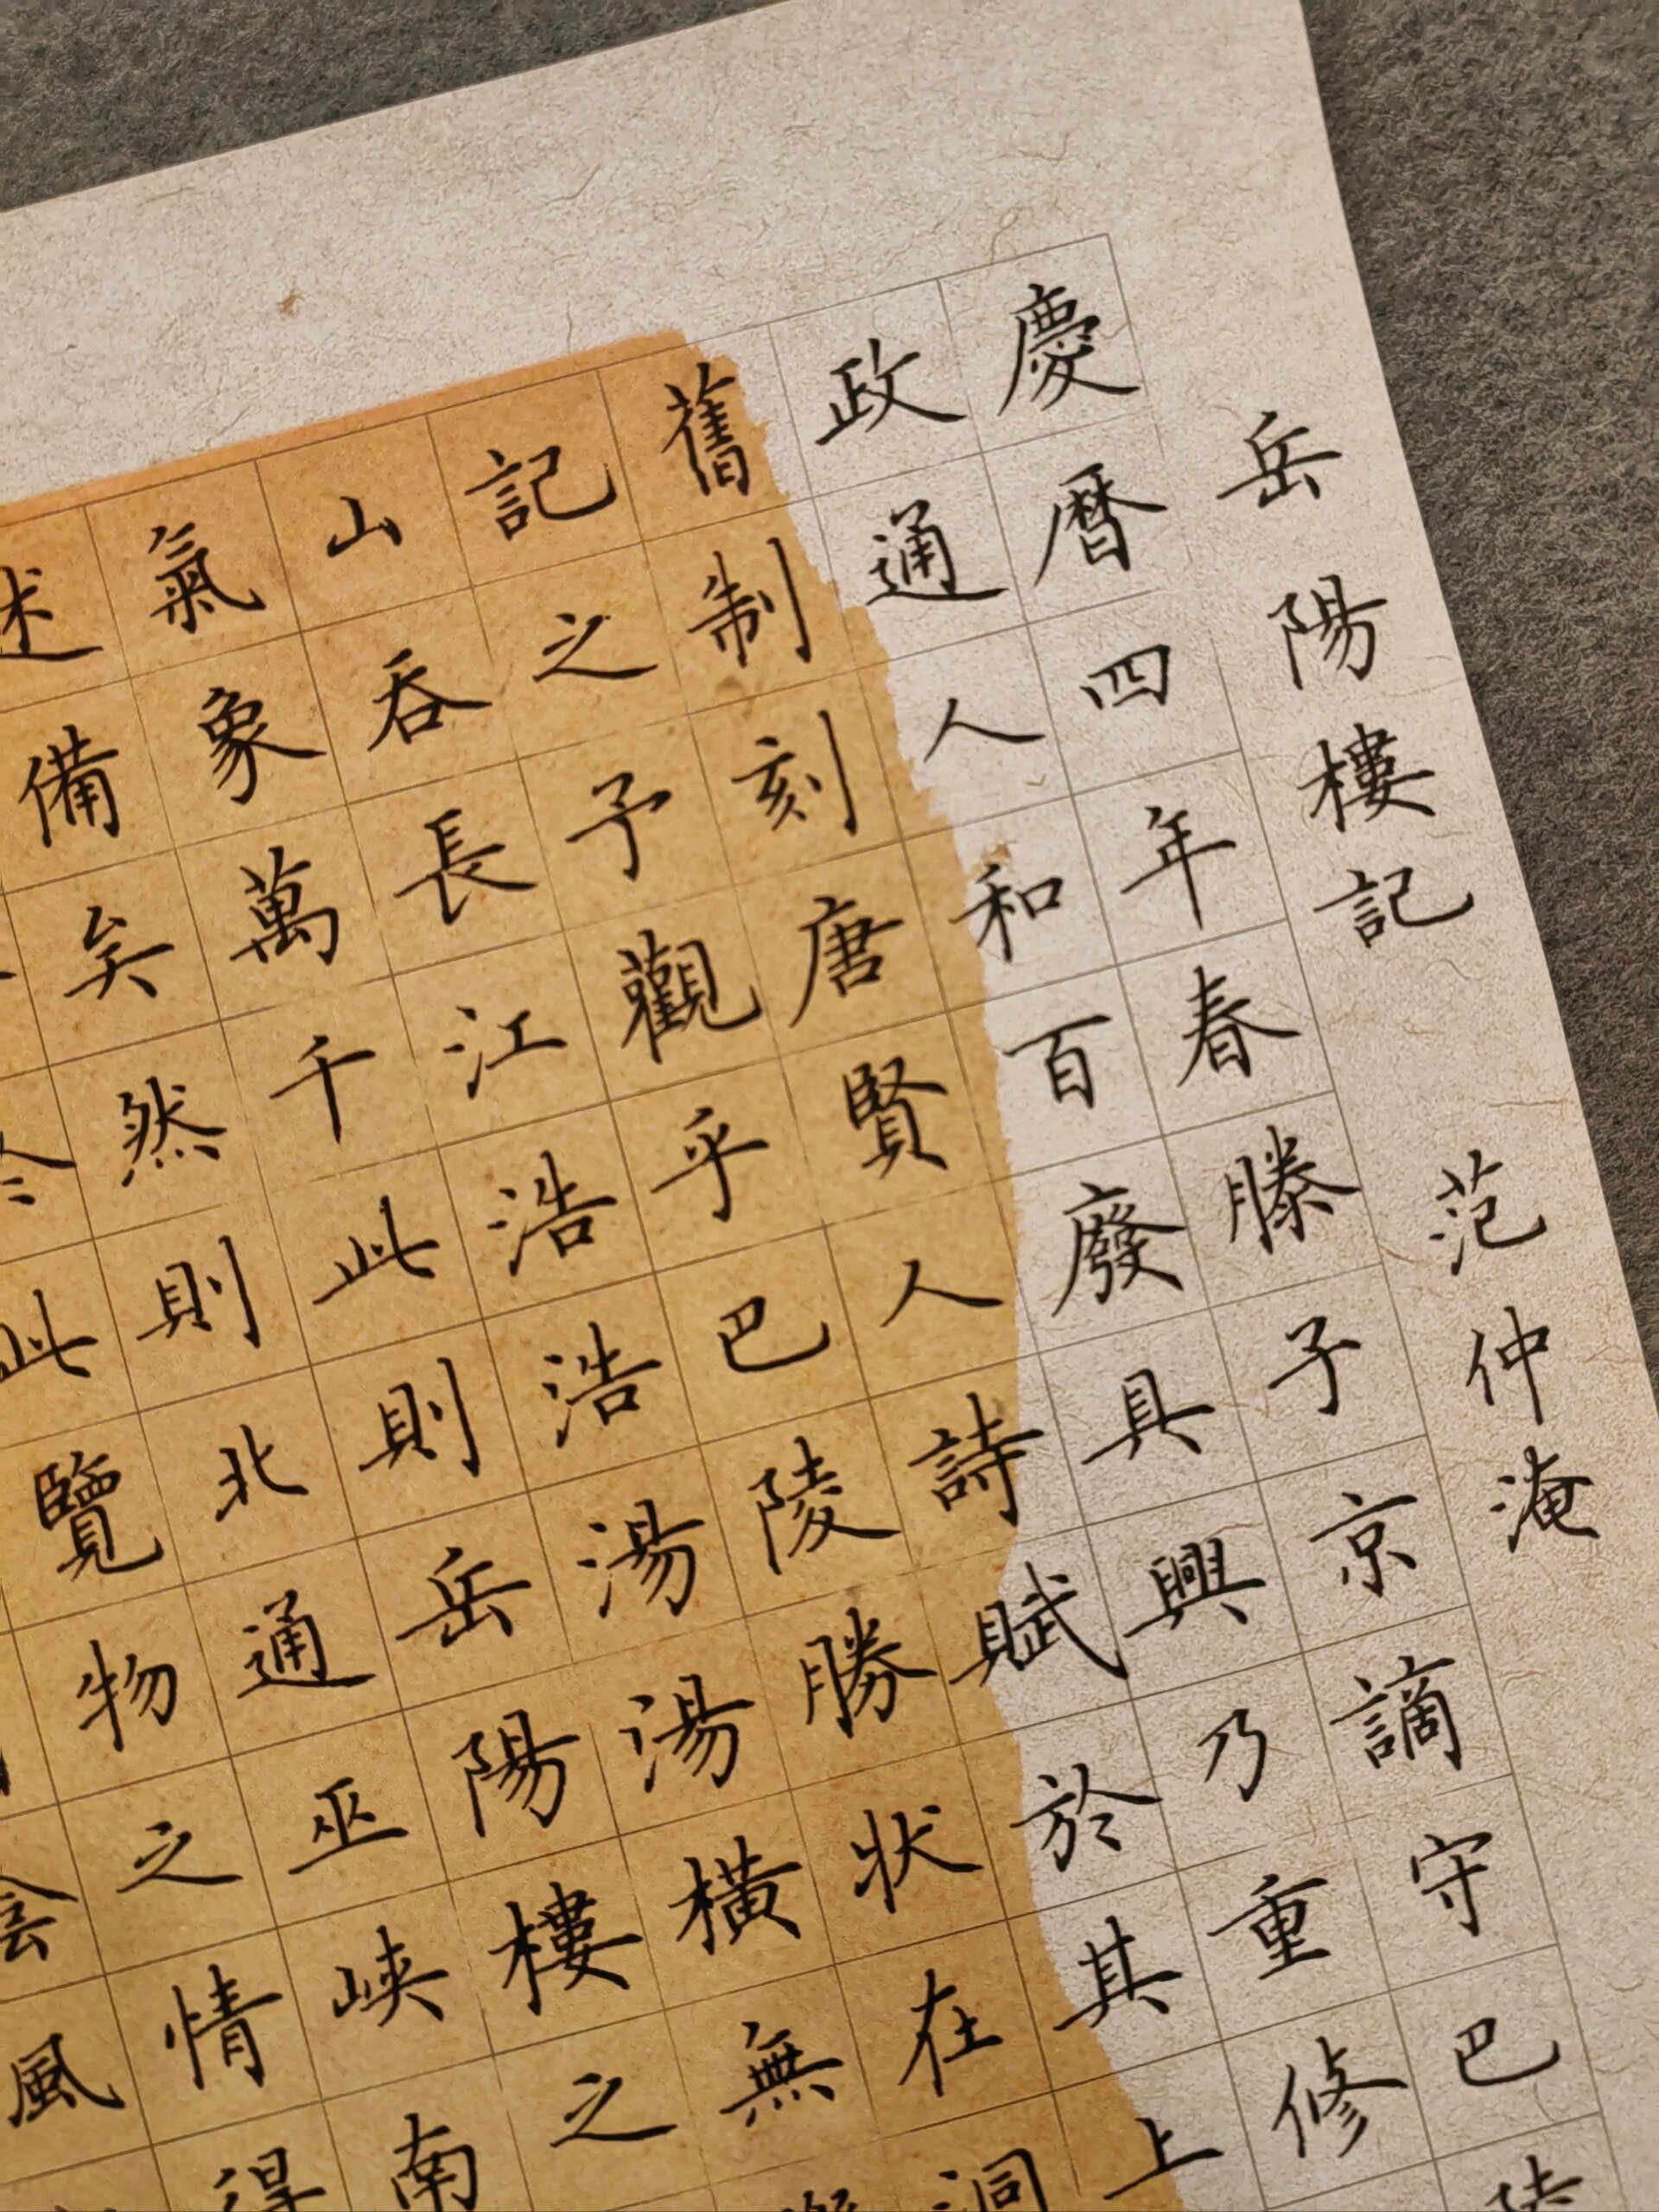 岳陽樓記 范仲淹
慶暦四年春滕子京謫守巴陵
政通人和百廢具興乃重修
舊制刻唐賢人詩賦於其上
記之予觀乎巴陵勝状在洞
山吞長江浩浩湯湯橫無
氣象萬千此則岳陽樓之
述備矣然則北通巫峽南
於此覽物之情得
陰風